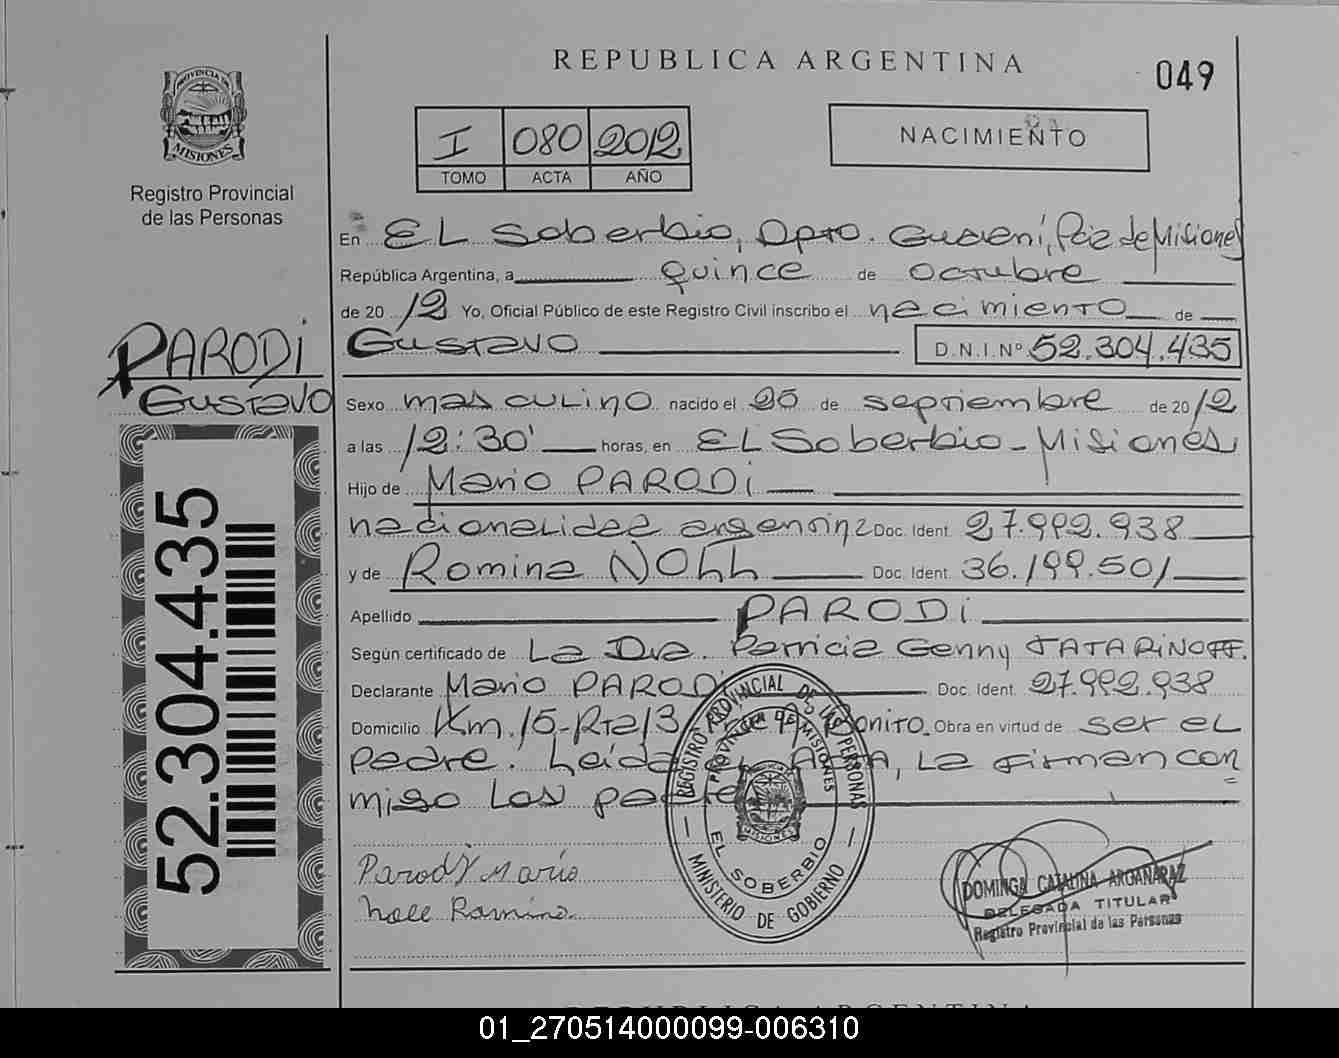 REPUBLICA ARGENTINA
049
PROVINCIA DE MISIONES
Registro Provincial
de las Personas
I 080 2012
TOMO ACTA AÑO
NACIMIENTO
En EL Soberbio, Dpto. Guaraní, Pcia de Misiones
República Argentina, a quince de octubre
de 2012 Yo, Oficial Público de este Registro Civil inscribo el nacimiento de
Gustavo D.N.I.Nº 52.304.435
PARODi
Gustavo
Sexo masculino nacido el 25 de septiembre de 2012
a las 12:30' horas, en EL Soberbio - Misiones
Hijo de Mario PARODi
nacionalidad argentina Doc. Ident. 27.992.938
y de Romina NOLL Doc. Ident. 36.199.501
Apellido PARODi
Según certificado de La Dra. Patricia Genny TATARiNOFF.
Declarante Mario PARODi Doc. Ident. 27.992.938
Domicilio Km. 15-Rta 13 Bonito. Obra en virtud de ser el
padre. Leida el Acta, La firman con
migo Los padres
52.304.435
REGISTRO PROVINCIAL DE LAS PERSONAS
PROVINCIA DE MISIONES
MISIONES
EL SOBERBIO
MINISTERIO DE GOBIERNO
Parodi Mario
Noll Romina
DOMINGA CATALINA ARGAÑARAZ
DELEGADA TITULAR
Registro Provincial de las Personas
REPUBLICA ARGENTINA
01_270514000099-006310